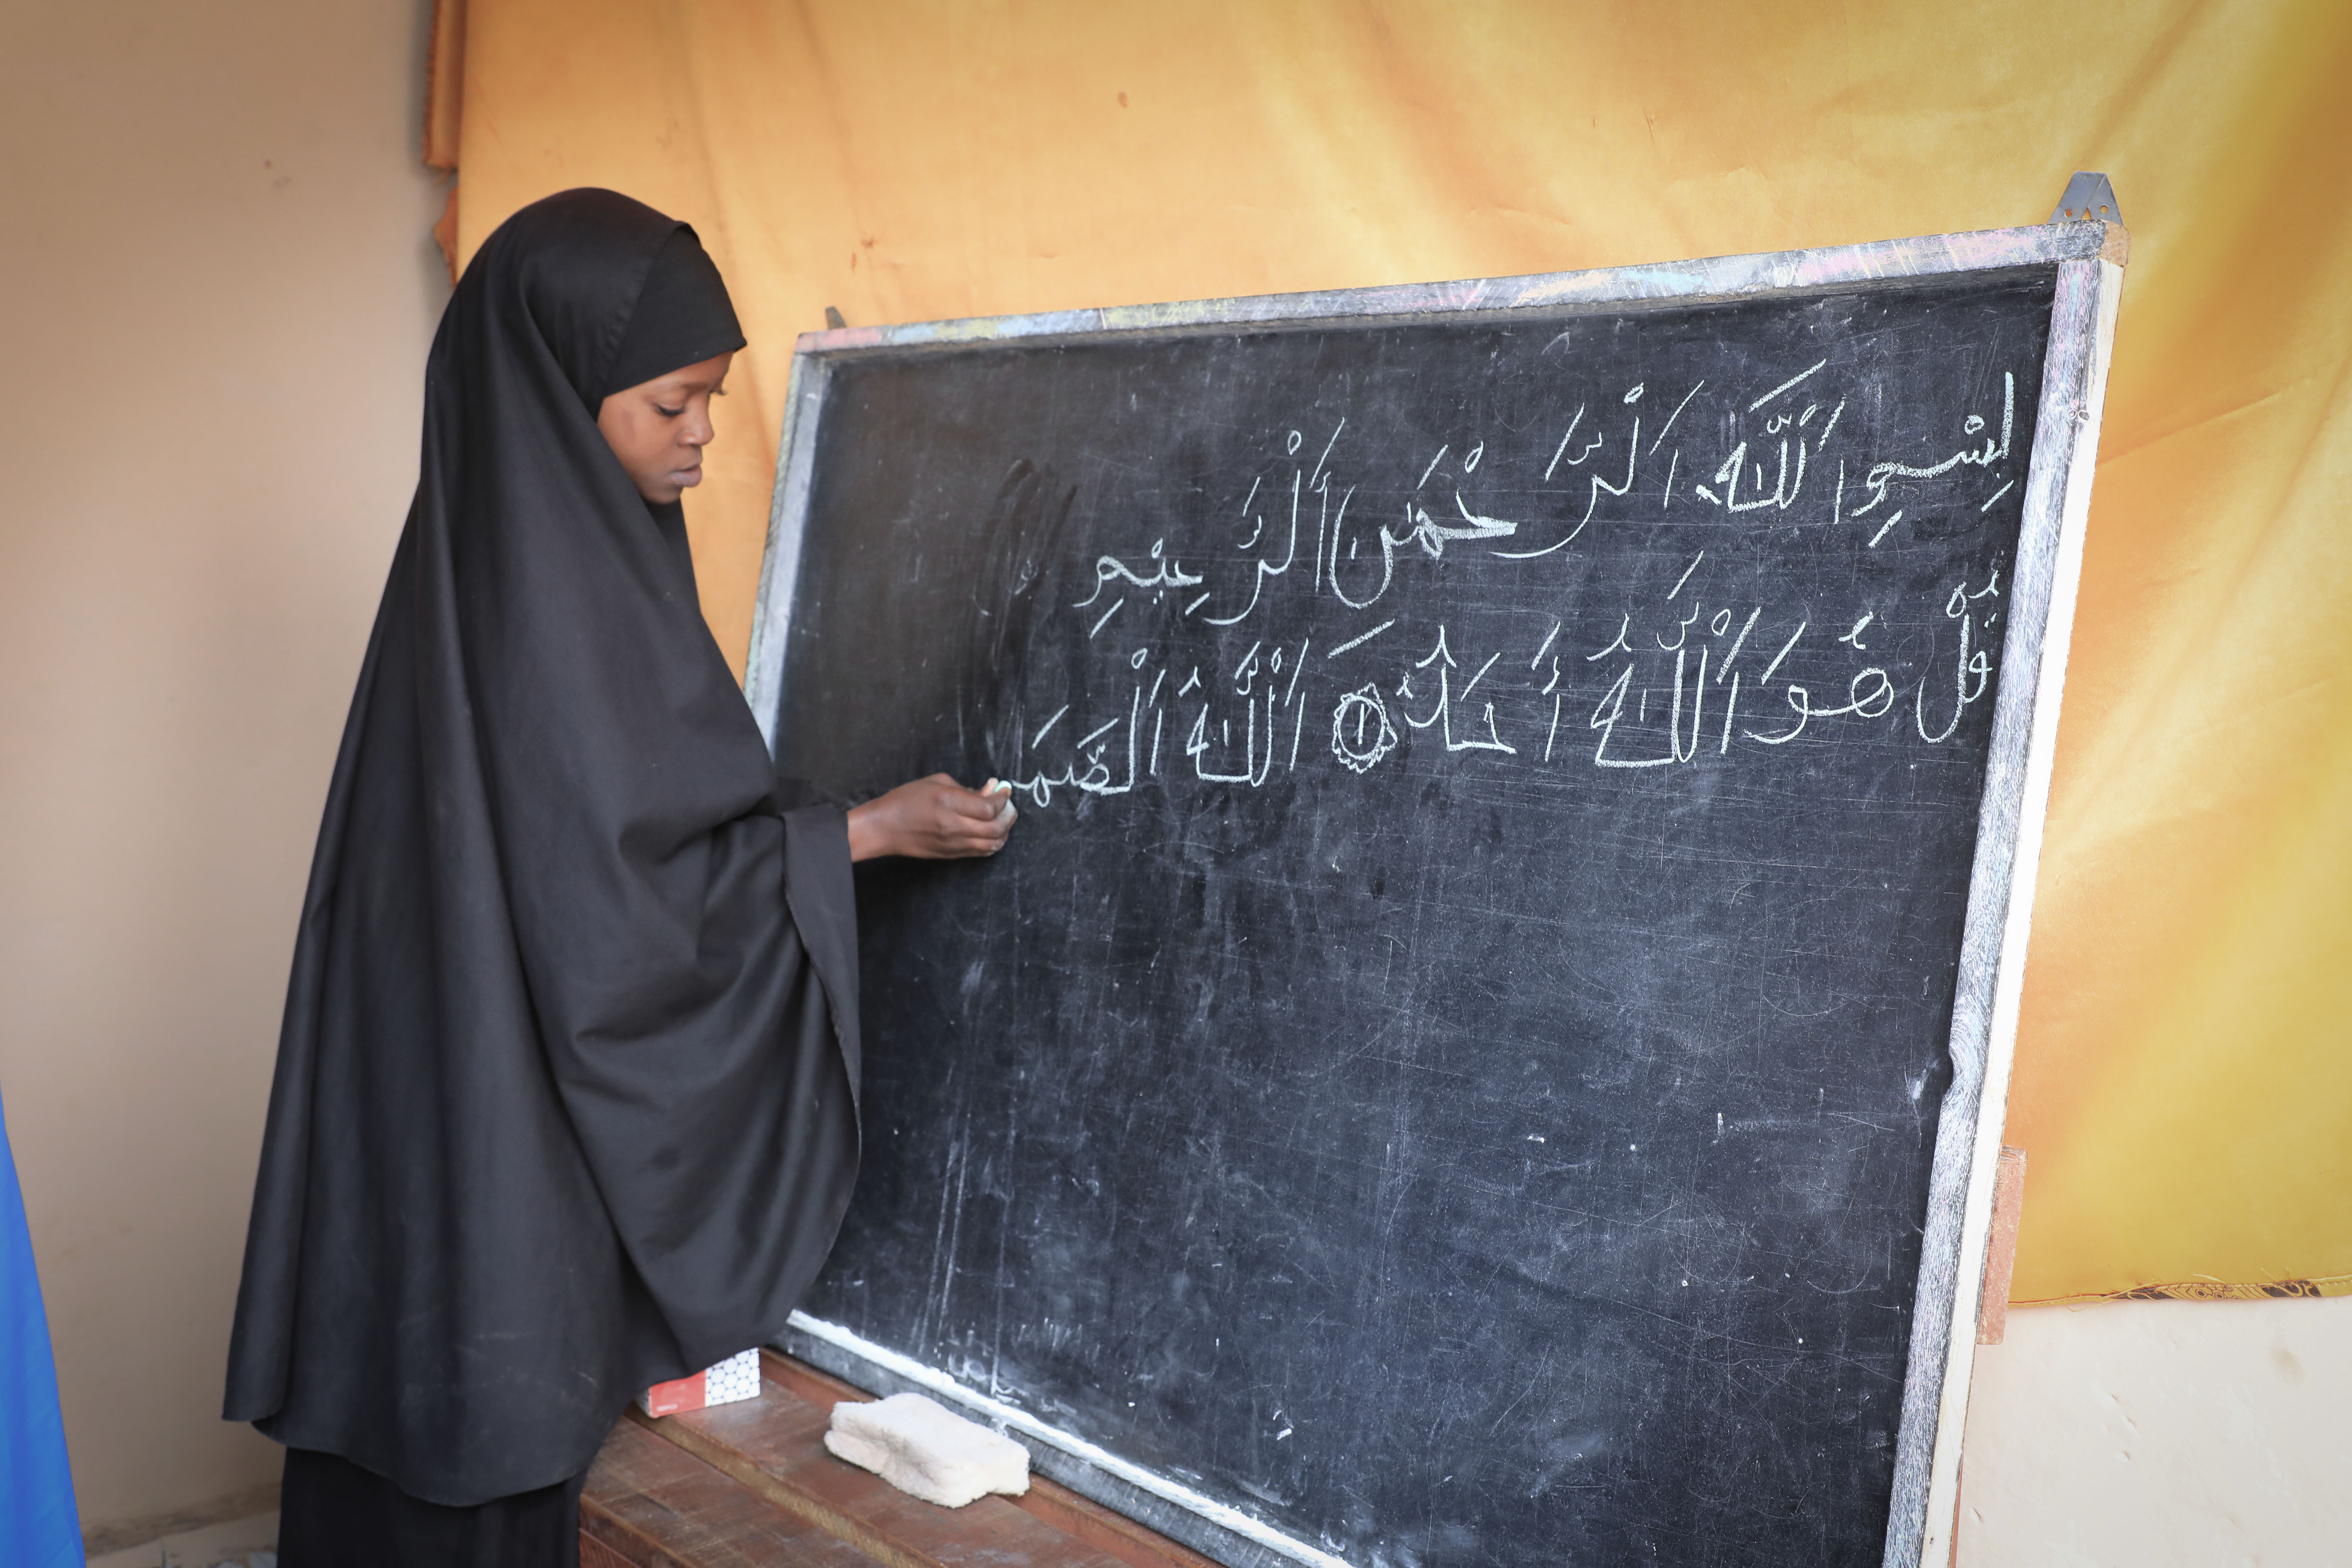 بِسْمِ اللَّهِ الرَّحْمَنِ الرَّحِيمِ
قُلْ هُوَ اللَّهُ أَحَدٌ ١ اللَّهُ الصَّمَ